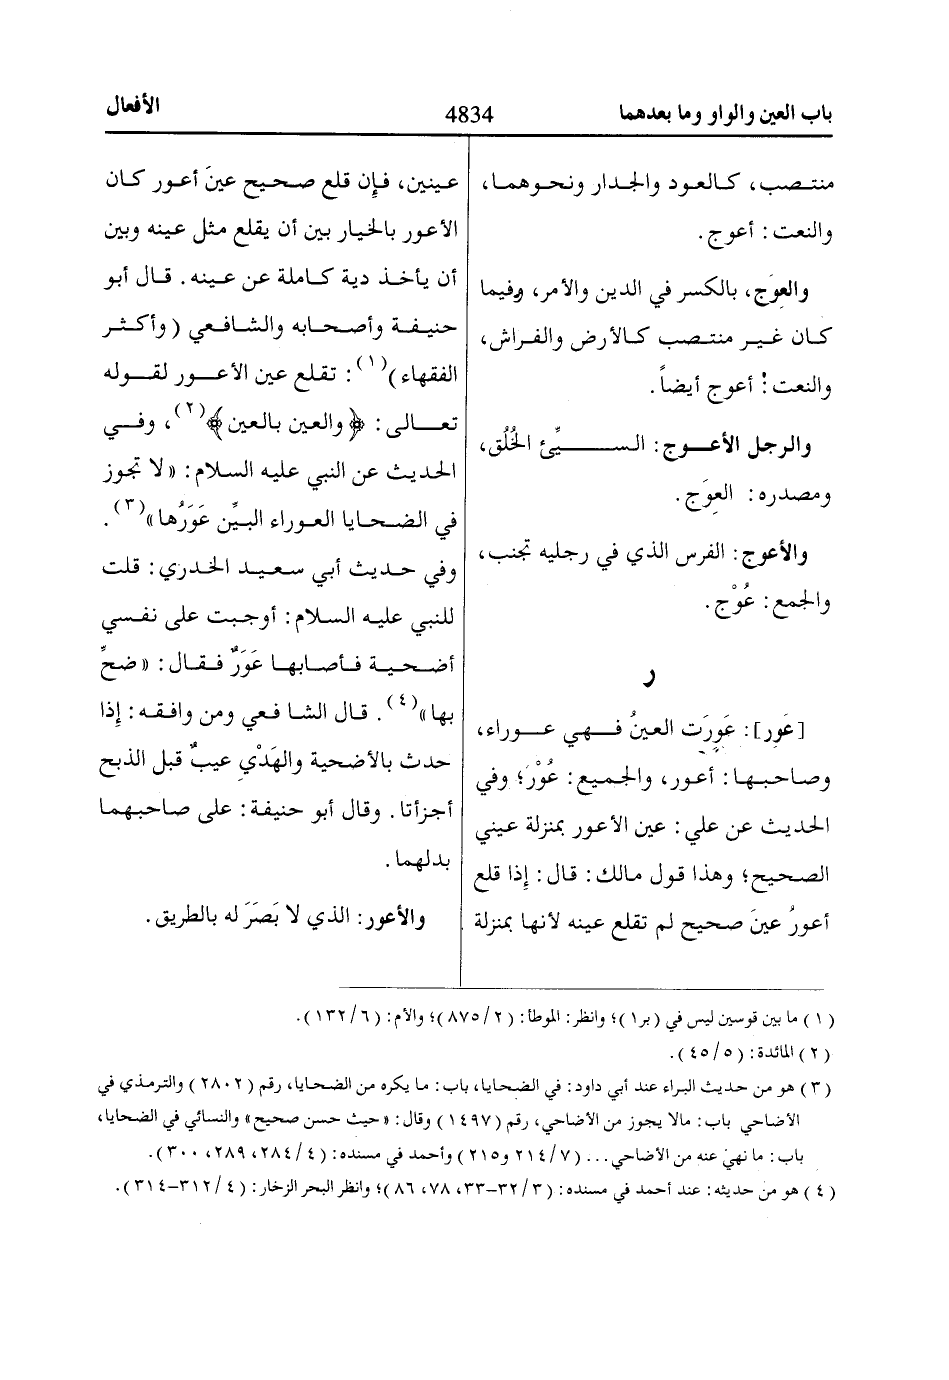 باب العين والواو وما بعدهما
4834
الأفعال
منتصب، كالعود والجدار ونحوهما،
والنعت: أعوج.
والعِوَج، بالكسر في الدين والأمر، وفيما
كان غير منتصب كالأرض والفراش،
والنعت: أعوج أيضاً.
والرجل الأعوج: السيِّئ الخُلُق،
ومصدره: العِوَج.
والأعوج: الفرس الذي في رجليه تجنب،
والجمع: عُوْج.
ر
[عَور]: عَوِرَت العينُ فهي عوراء،
وصاحبها: أعور، والجميع: عُوْر؛ وفي
الحديث عن علي: عين الأعور بمنزلة عيني
الصحيح؛ وهذا قول مالك: قال: إذا قلع
أعورُ عينَ صحيح لم تقلع عينه لأنها بمنزلة
عينين، فإن قلع صحيح عينَ أعور كان
الأعور بالخيار بين أن يقلع مثل عينه وبين
أن يأخذ دية كاملة عن عينه. قال أبو
حنيفة وأصحابه والشافعي (وأكثر
الفقهاء)(١): تقلع عين الأعور لقوله
تعالى: ﴿والعين بالعين﴾(٢)، وفي
الحديث عن النبي عليه السلام: «لا تجوز
في الضحايا العوراء البيِّن عَوَرُها»(٣).
وفي حديث أبي سعيد الخدري: قلت
للنبي عليه السلام: أوجبت على نفسي
أضحية فأصابها عَوَرٌ فقال: «ضحِّ
بها»(٤). قال الشافعي ومن وافقه: إذا
حدث بالأضحية والهَدْيِ عيبٌ قبل الذبح
أجزأتا. وقال أبو حنيفة: على صاحبهما
بدلهما.
والأعور: الذي لا بَصَرَ له بالطريق.
(١) ما بين قوسين ليس في (بر١)؛ وانظر: الموطأ: (٢/٨٧٥)؛ والأم: (٦/١٣٢).
(٢) المائدة: (٥/٤٥).
(٣) هو من حديث البراء عند أبي داود: في الضحايا، باب: ما يكره من الضحايا، رقم (٢٨٠٢) والترمذي في
الأضاحي باب: مالا يجوز من الأضاحي، رقم (١٤٩٧) وقال: «حيث حسن صحيح» والنسائي في الضحايا،
باب: ما نهيَ عنه من الأضاحي... (٧/٢١٤ و٢١٥) وأحمد في مسنده: (٤/٢٨٤، ٢٨٩، ٣٠٠).
(٤) هو من حديثه: عند أحمد في مسنده: (٣/٣٢-٣٣، ٧٨، ٨٦)؛ وانظر البحر الزخار: (٤/٣١٢-٣١٤).